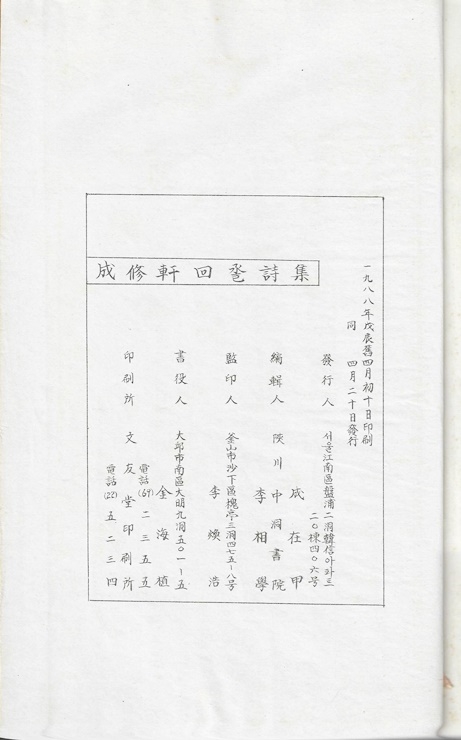 一九八八年戊辰舊四月初十日印刷
同 四月二十日發行
成修軒回甲詩集
發行人 서울江南區盤浦二洞韓信아파트
二〇棟四〇六号
成在甲
編輯人 陜川中洞書院
李相學
監印人 釜山市沙下區槐亭三洞四七五-八号
李煥浩
書役人 大邱市南區大明九洞五〇一-五
金海植
電話(67)二三五五
印刷所 文友堂印刷所
電話(22)五二三四